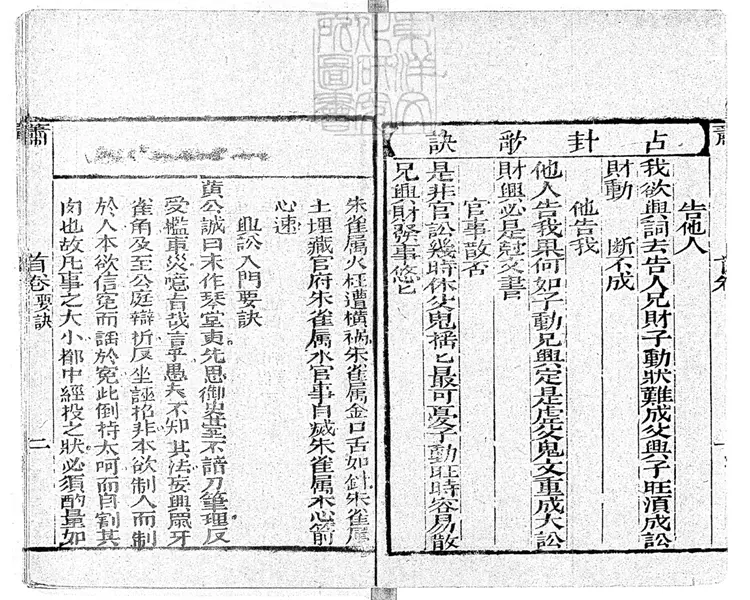 占卦歌訣
告他人
我欲與詞去告人兄財子動狀難成父興子旺湏成訟
財動 断不成
他告我
他人告我果何如子動兄興定是虛父鬼文重成大訟
財興必是愆文書
官事散否
是非官訟幾時休父鬼揺匕最可憂子動旺時容易散
兄興財發事悠匕
朱雀属火枉遭横禍朱雀属金口舌如針朱雀属
土埋藏官府朱雀属水官事自滅朱雀属木心箭
心速
興訟入門要訣
黄公誠曰未作琴堂吏先思御史臺不諳刀筆理反
受檻車災噫旨哉言乎愚夫不知其法妄興鼠牙
雀角及至公庭辯折反坐誣招非本欲制人而制
於人本欲信冤而話於冤此倒持太呵而自割其
肉也故凡事之大小擲中經投之狀必須酌量如
首卷要訣
二
蕭